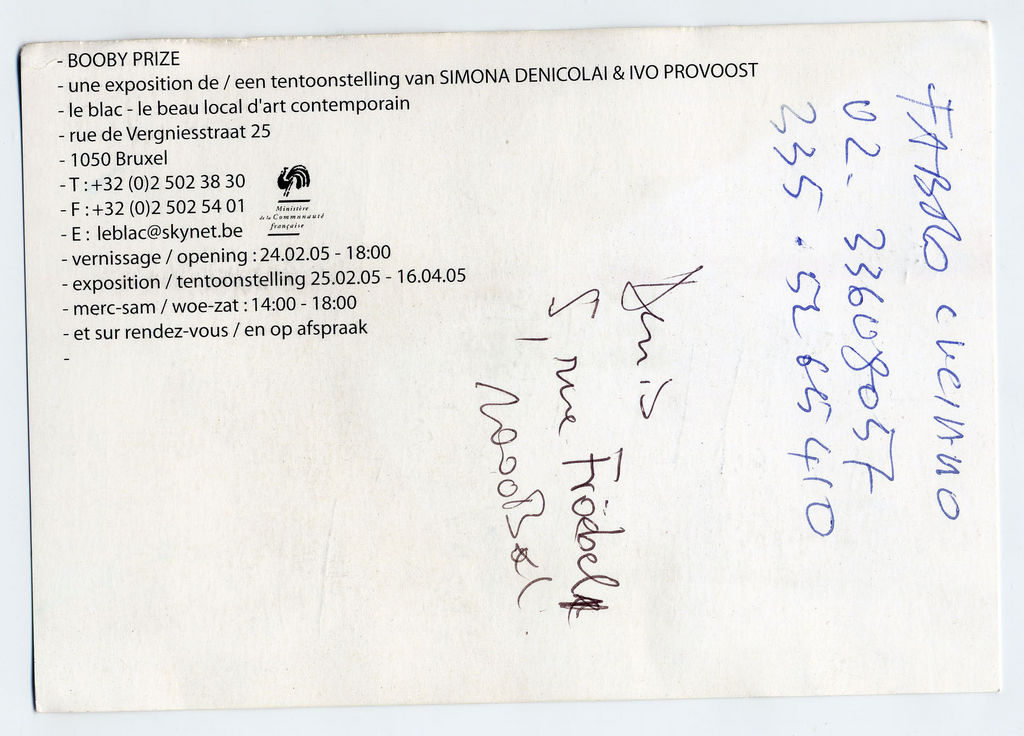 - BOOBY PRIZE
- une exposition de / een tentoonstelling van SIMONA DENICOLAI & IVO PROVOOST
- le blac - le beau local d'art contemporain
- rue de Vergniesstraat 25
- 1050 Bruxel
- T : +32 (0)2 502 38 30
- F : +32 (0)2 502 54 01
- E : leblac@skynet.be
- vernissage / opening : 24.02.05 - 18:00
- exposition / tentoonstelling 25.02.05 - 16.04.05
- merc-sam / woe-zat : 14:00 - 18:00
- et sur rendez-vous / en op afspraak
-
Ministère
de la Communauté
française
02. 33608057
335.52 65 410
5, rue Fröbel